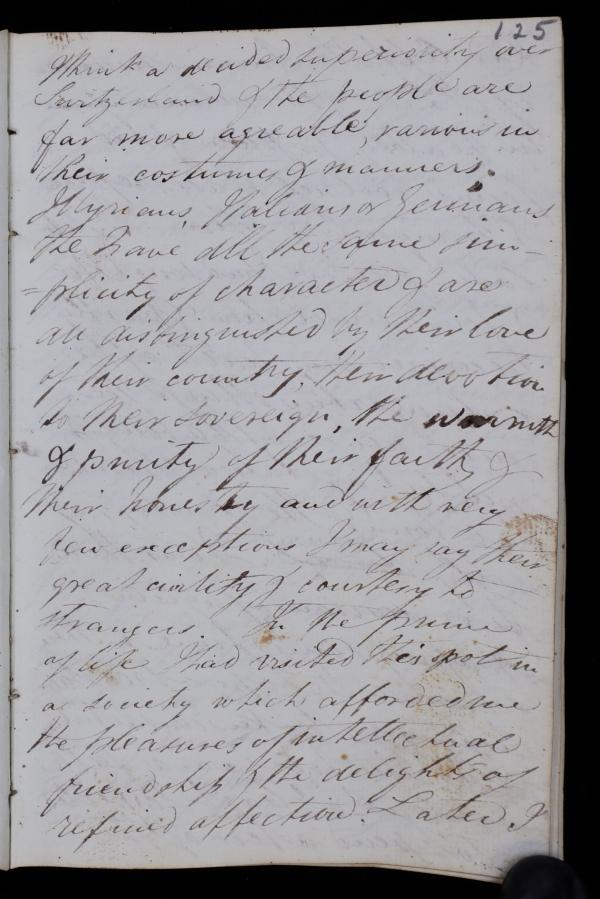 125
think a decided superiority over
Switzerland & the people are
far more agreable, various in
their costumes & manners.
Illyrians, Italians or Germans
the have all the same sim-
=plicity of character & are
all distinguished by their love
of their country, their devotion
to their sovereign, the warmth
& purity of their faith, &
their honesty and with very
few exceptions I may say their
great civility & courtesy to
strangers. In the prime
of life I had visited this spot in
a society which afforded me
the pleasures of intellectual
friendship & the delights of
refined affection. Later I